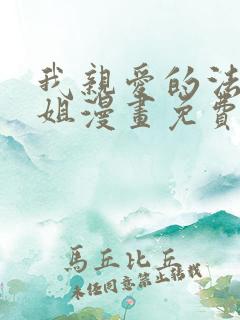 我親愛的法
姐漫畫免費
馬丘比丘
未経同意禁止轉載